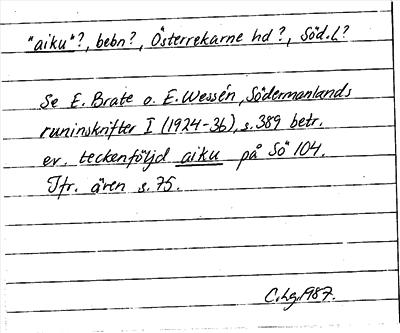 "aiku"?, bebn?, Österrekarne hd?, Söd.l?
Se E. Brate o. E. Wessén, Södermanlands
runinskrifter I (1924-36), s. 389 betr.
ev. teckenföljd aiku på Sö 104.
Jfr. även s. 75.
C.Lg. 1987.